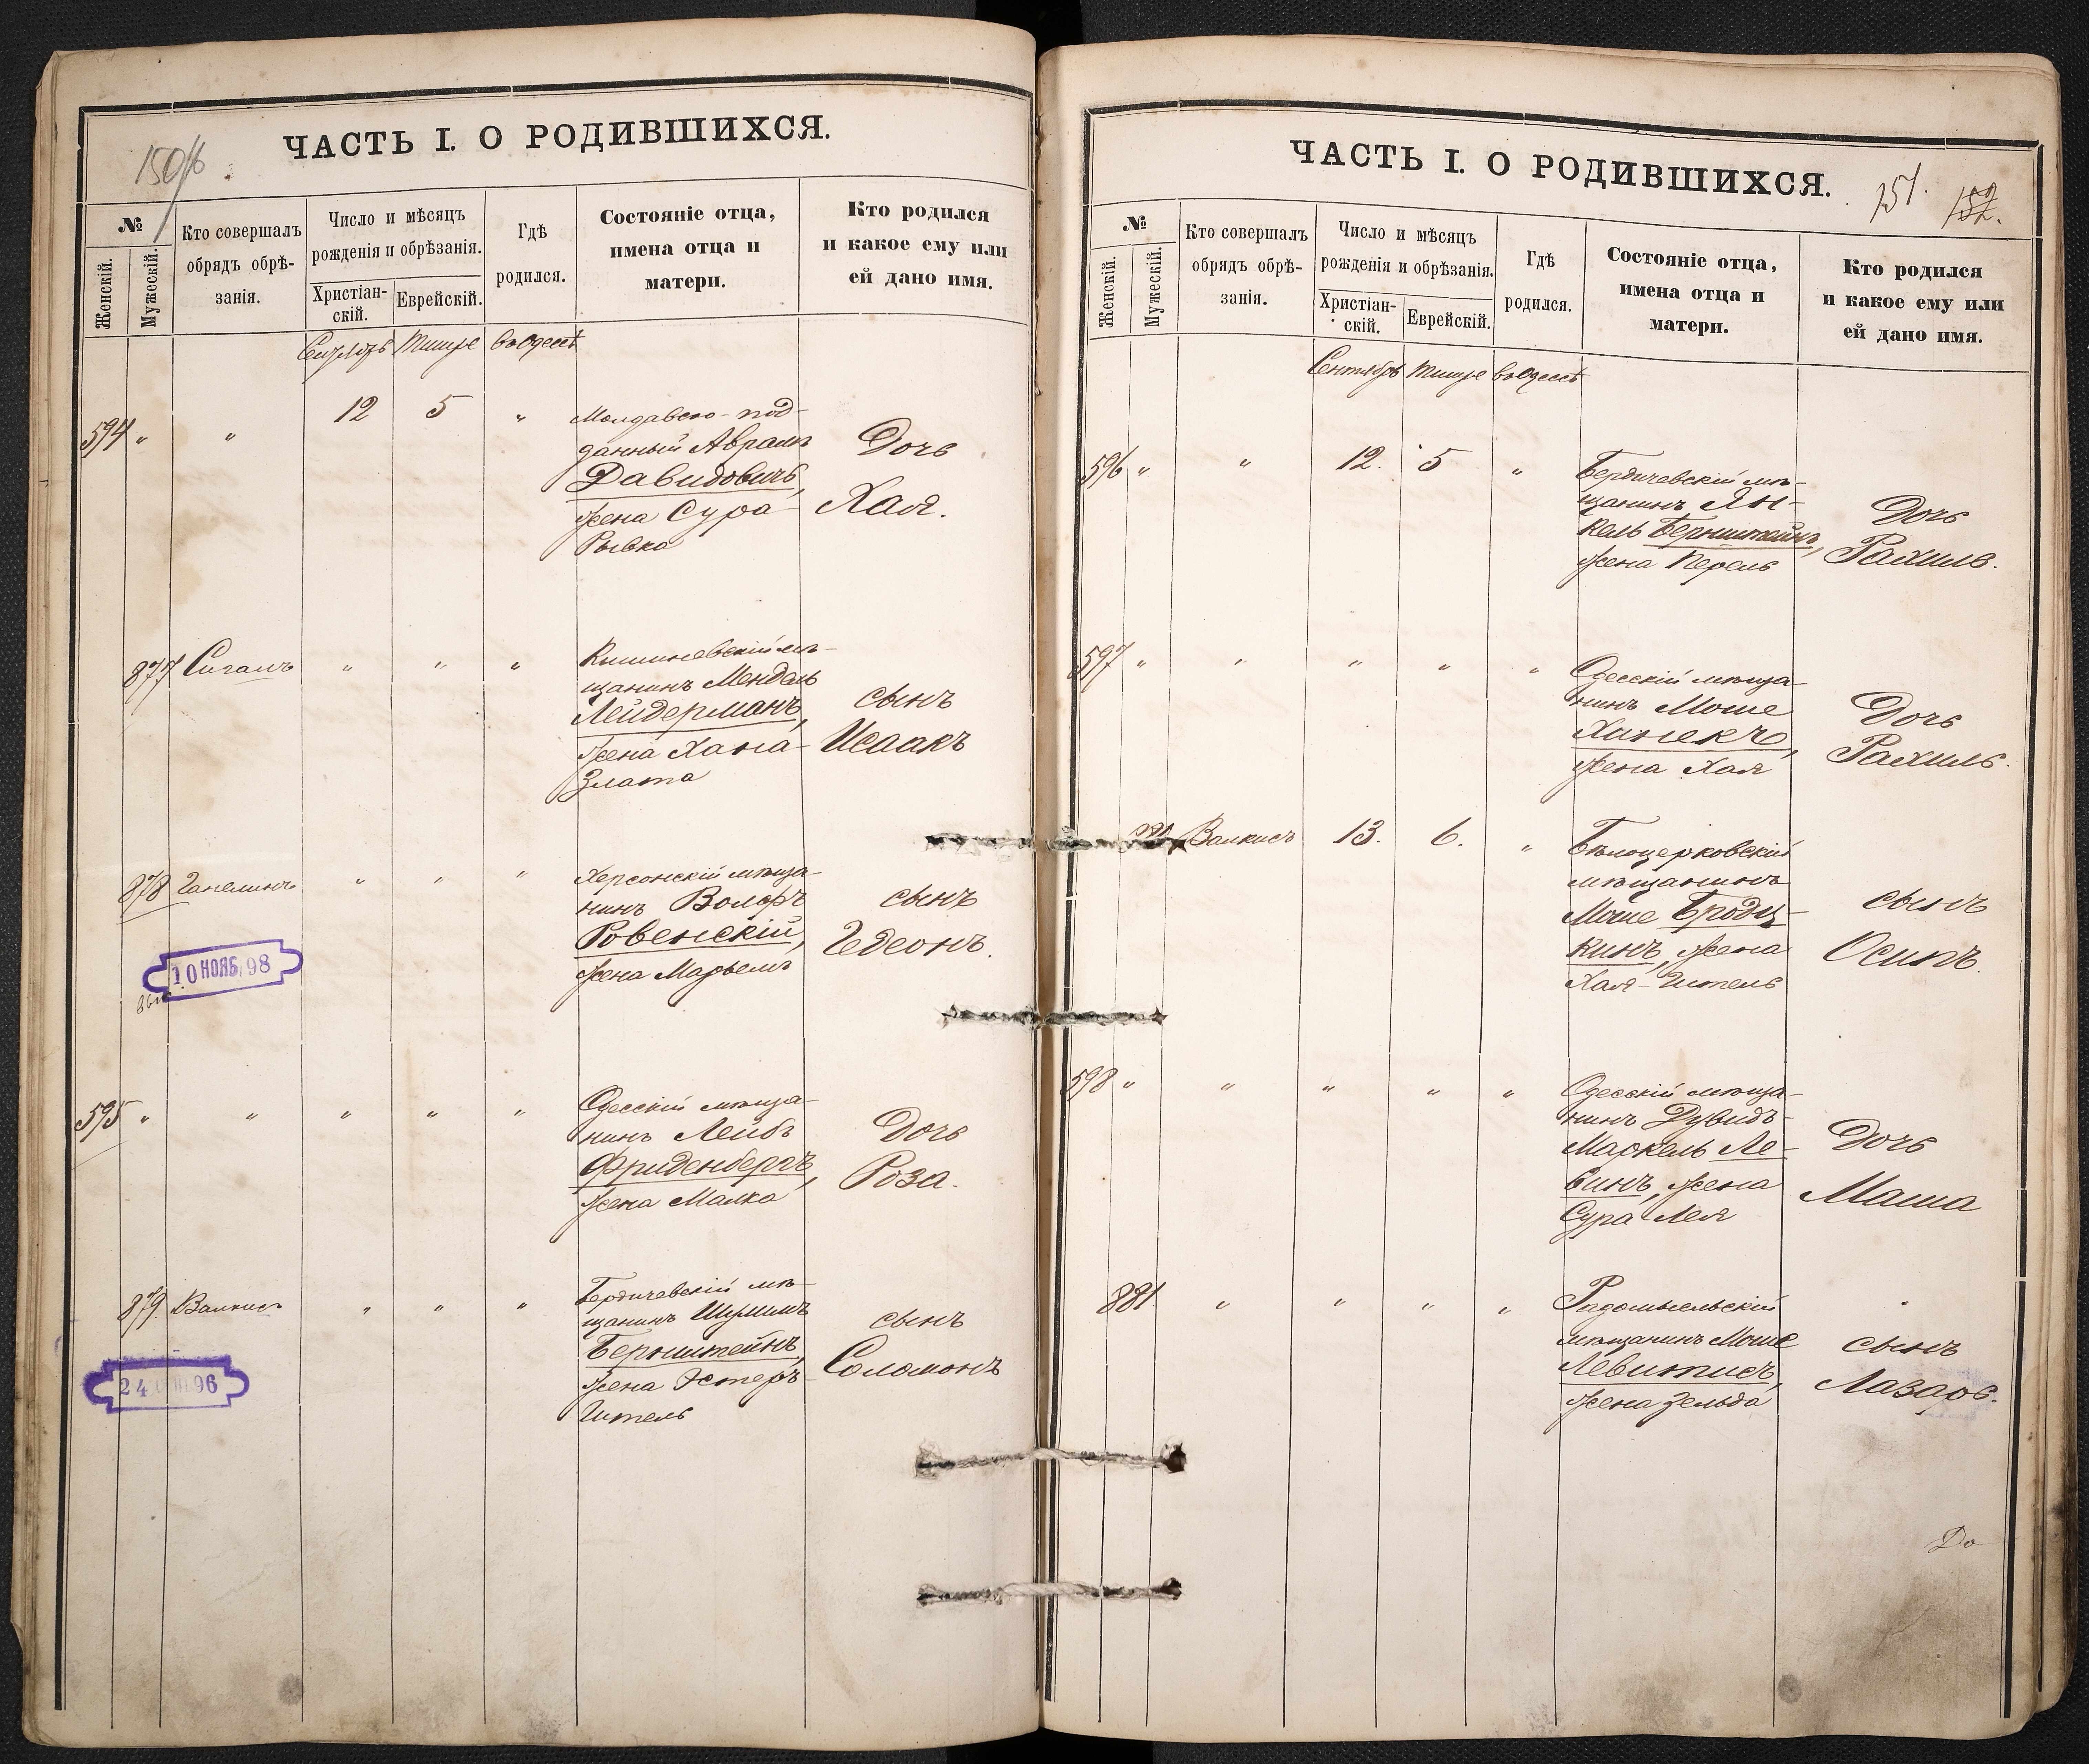 ЧАСТЬ I. О РОДИВШИХСЯ.
№
Женскій.
Мужескій.
Кто совершалъ
обрядъ обрѣ-
занія.
Число и мѣсяцъ
рожденія и обрѣзанія.
Христіан-
скій.
Еврейскій.
Гдѣ
родился.
Состояніе отца,
имена отца и
матери.
Кто родился
и какое ему или
ей дано имя.
Тишре въ Одессѣ
594 " " 12 5 "
Молдавско-под-
данный Абрамъ
Давидовичъ,
жена Сура
Рывка
Дочь
Хая.
877 Сигалъ " " "
Кишиневскій мѣ-
щанинъ Мендель
Лейдерманъ,
жена Хана-
Злата
сынъ
Исаакъ
878 Ганелинъ " " "
Херсонскій мѣща-
нинъ Вольфъ
Ровенскій,
жена Марьемъ
сынъ
Гедеонъ.
10 НОЯБ 98
595 " " " " "
Одесскій мѣща-
нинъ Лейбъ
Фриденбергъ,
жена Малка
Дочь
Роза.
879. Валкисъ " " "
Бердичевскій мѣ-
щанинъ
Бернштейнъ,
жена Эстеръ
Гитель
сынъ
Соломонъ
24 96
ЧАСТЬ I. О РОДИВШИХСЯ.
151. 152.
№
Женскій.
Мужескій.
Кто совершалъ
обрядъ обрѣ-
занія.
Число и мѣсяцъ
рожденія и обрѣзанія.
Христіан-
скій.
Еврейскій.
Гдѣ
родился.
Состояніе отца,
имена отца и
матери.
Кто родился
и какое ему или
ей дано имя.
Сентябрь Тишре въ Одессѣ
596 " " 12. 5 "
Бердичевскій мѣ-
щанинъ Ян-
кель Бернштейнъ,
жена Перель
Дочь
Рахиль.
597 " " " " "
Одесскій мѣща-
нинъ Моше
Ханекъ,
жена Хая
Дочь
Рахиль.
Валкисъ 13. 6. "
Бѣлоцерковскій
мѣщанинъ
Моше Бродц-
кинъ, жена
Хая-Гитель
сынъ
Осипъ.
598 " " " " "
Одесскій мѣща-
нинъ Дувидъ-
Маркель Ле-
винъ, жена
Сура Лея
Дочь
Маша
881. " " " "
Радомысльскій
мѣщанинъ Моше
Левитисъ,
жена Зельда
сынъ
Лазарь.
До